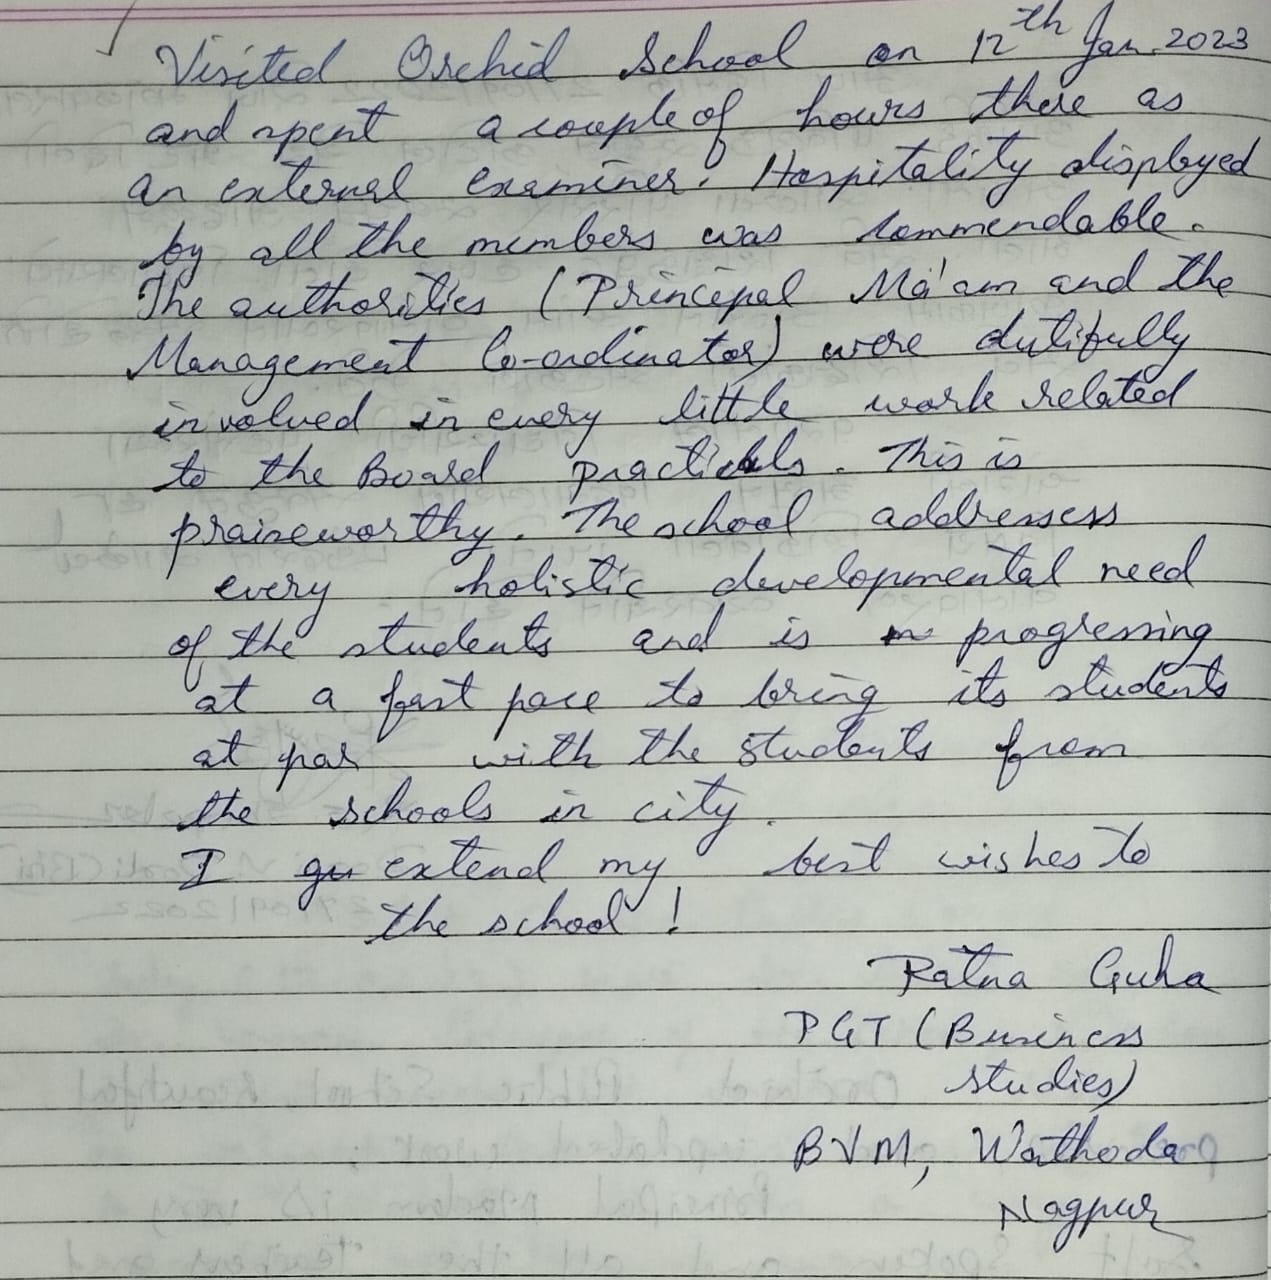 Visited Orchid School on 12th Jan. 2023
and spent a couple of hours there as
an external examiner. Hospitality displayed
by all the members was commendable.
The authorities (Principal Ma'am and the
Management Co-ordinator) were dutifully
involved in every little work related
to the Board practicals. This is
praiseworthy. The school addressess
every holistic developmental need
of the students and is progressing
at a fast pace to bring its students
at par with the students from
the schools in city.
I extend my best wishes to
the school!
Ratna Guha
PGT (Business
studies)
BVM, Wathoda
Nagpur